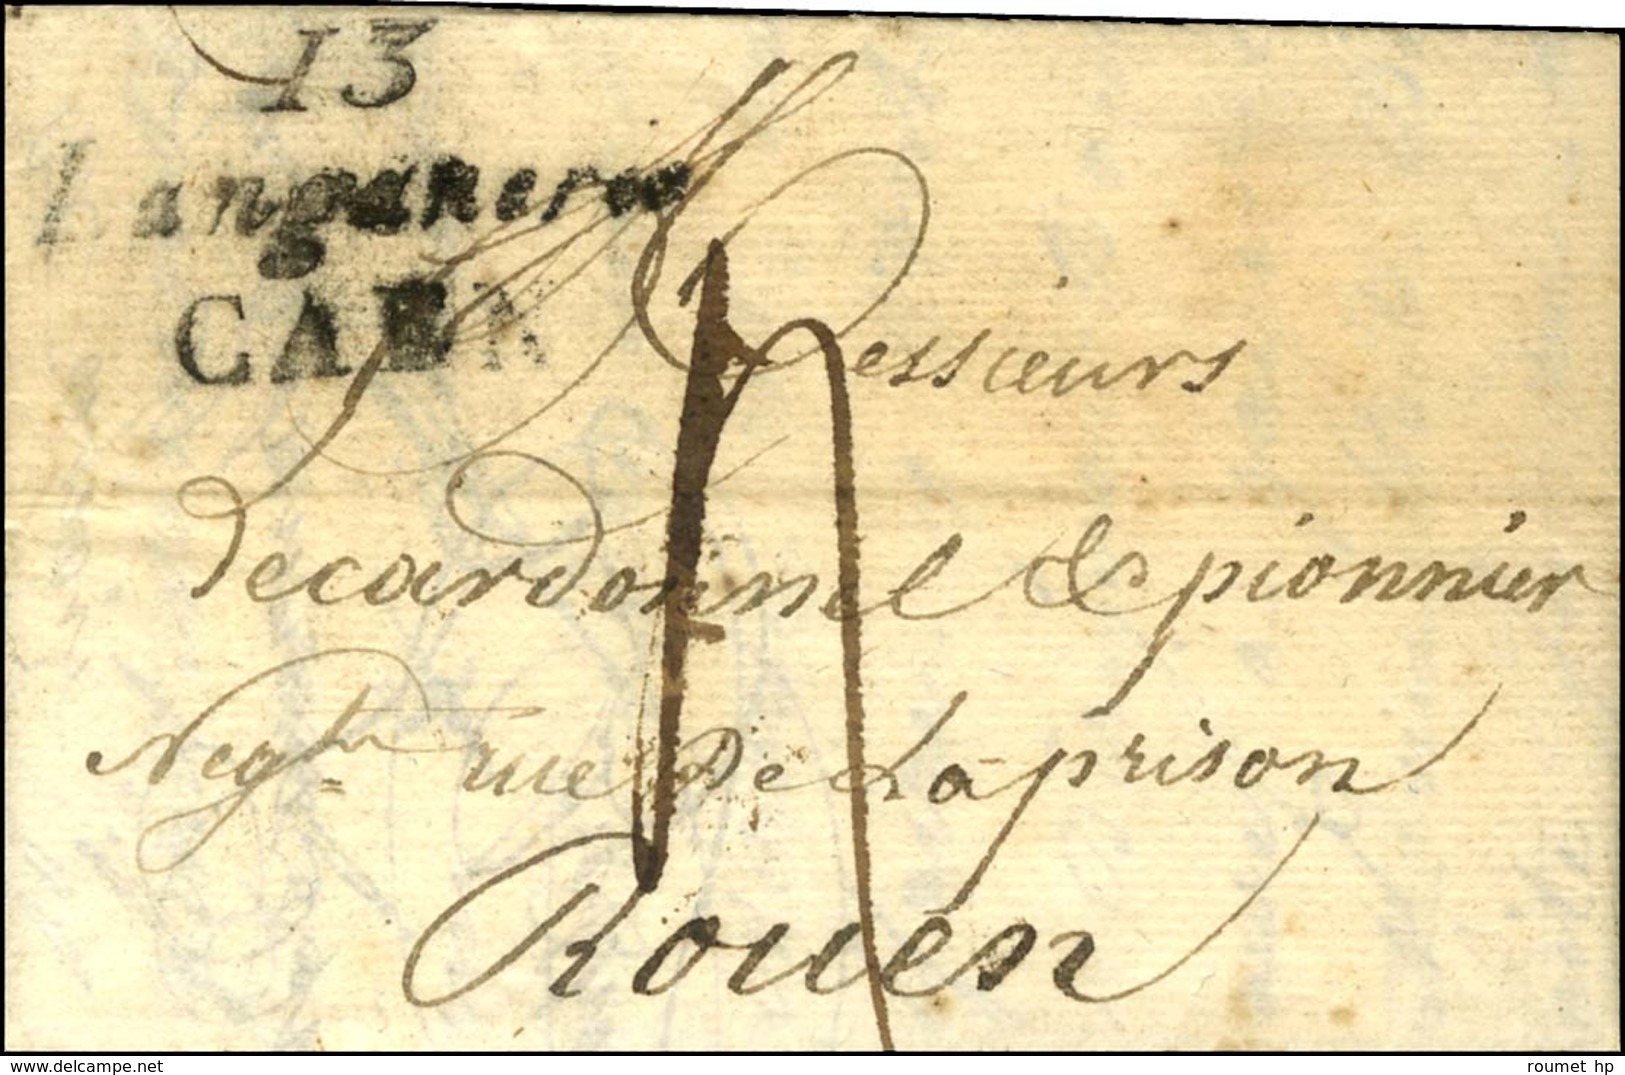 13
Langanerie
CAEN
Messieurs
Decardonnel & pionnier
Negts rue De La prison
Rouen
delcampe.net
roumet hp